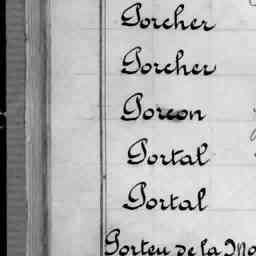 Porcher
Porcher
Porcon
Portal
Portal
Porteu de la